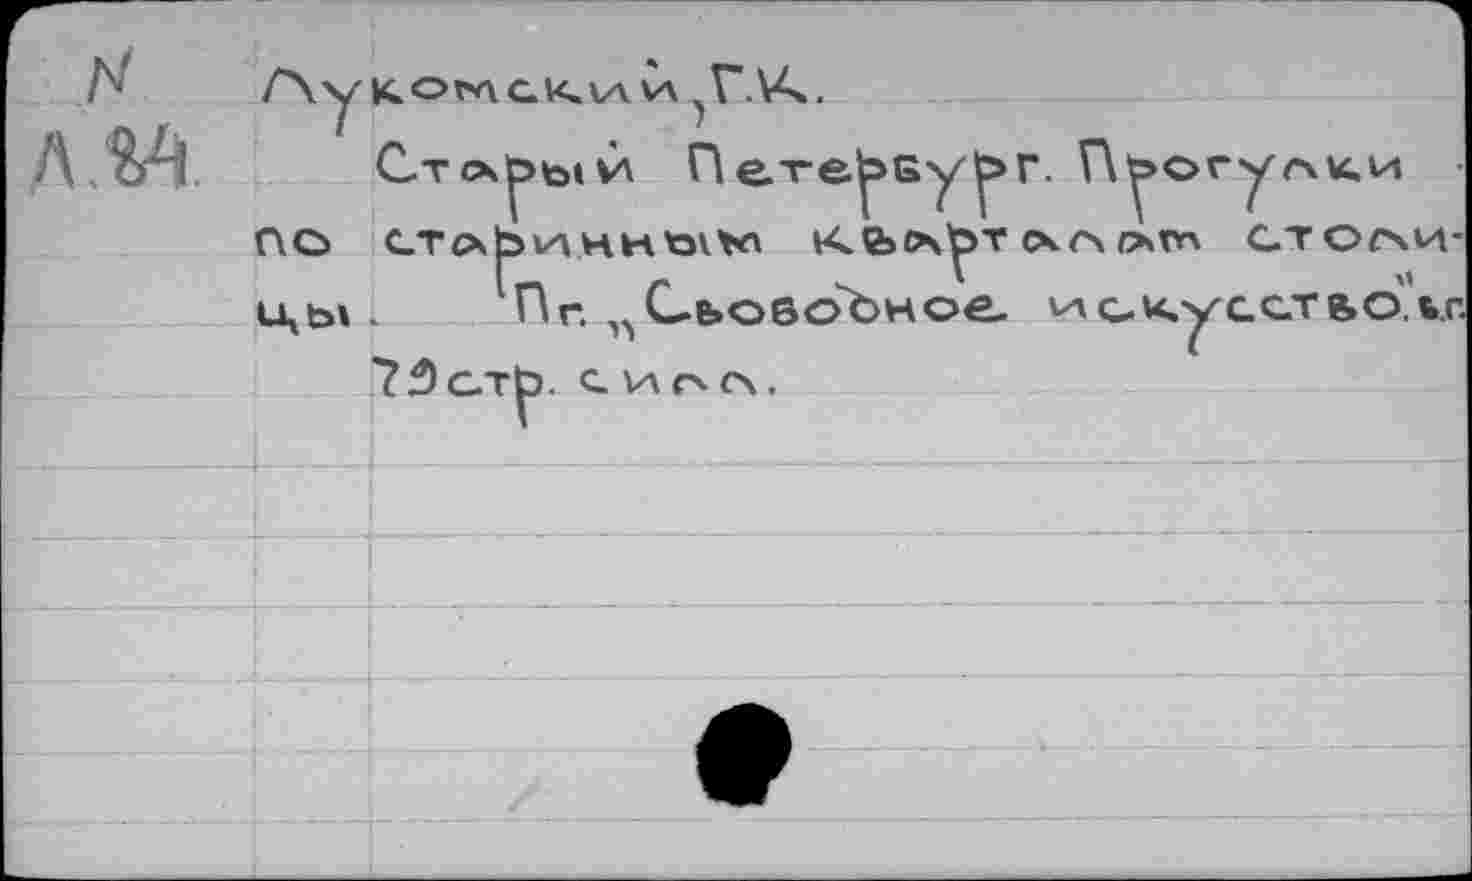 N Лукомский, Г.К.
Л.84. Старый Петербург. Прогулки
по старинным кварталам столи-
цы. Пг. „Свободное искусство". б.г.
73 стр. с илл.